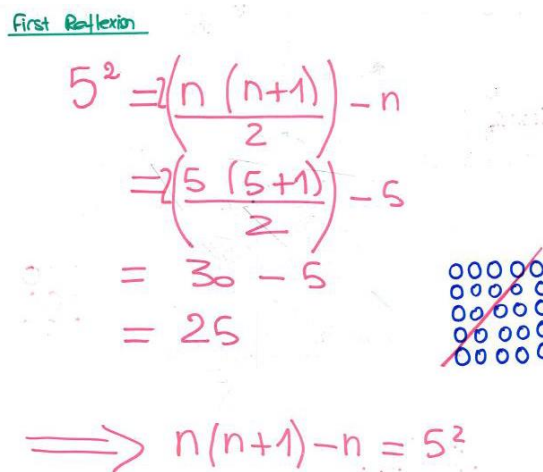 First Reflexion
5² = 2(n (n+1) / 2) - n
= 2(5 (5+1) / 2) - 5
= 30 - 5
= 25
⟹ n(n+1) - n = 5²